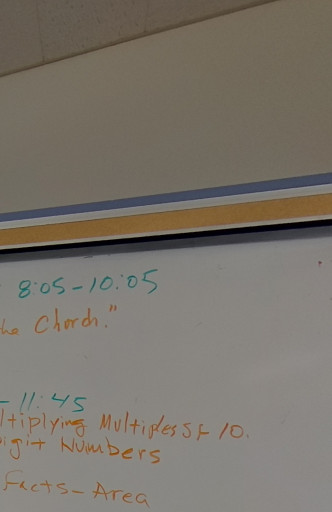 8:05-10:05
he Chord."
- 11:45
ltiplying Multiples of 10.
igit Numbers
Facts-Area